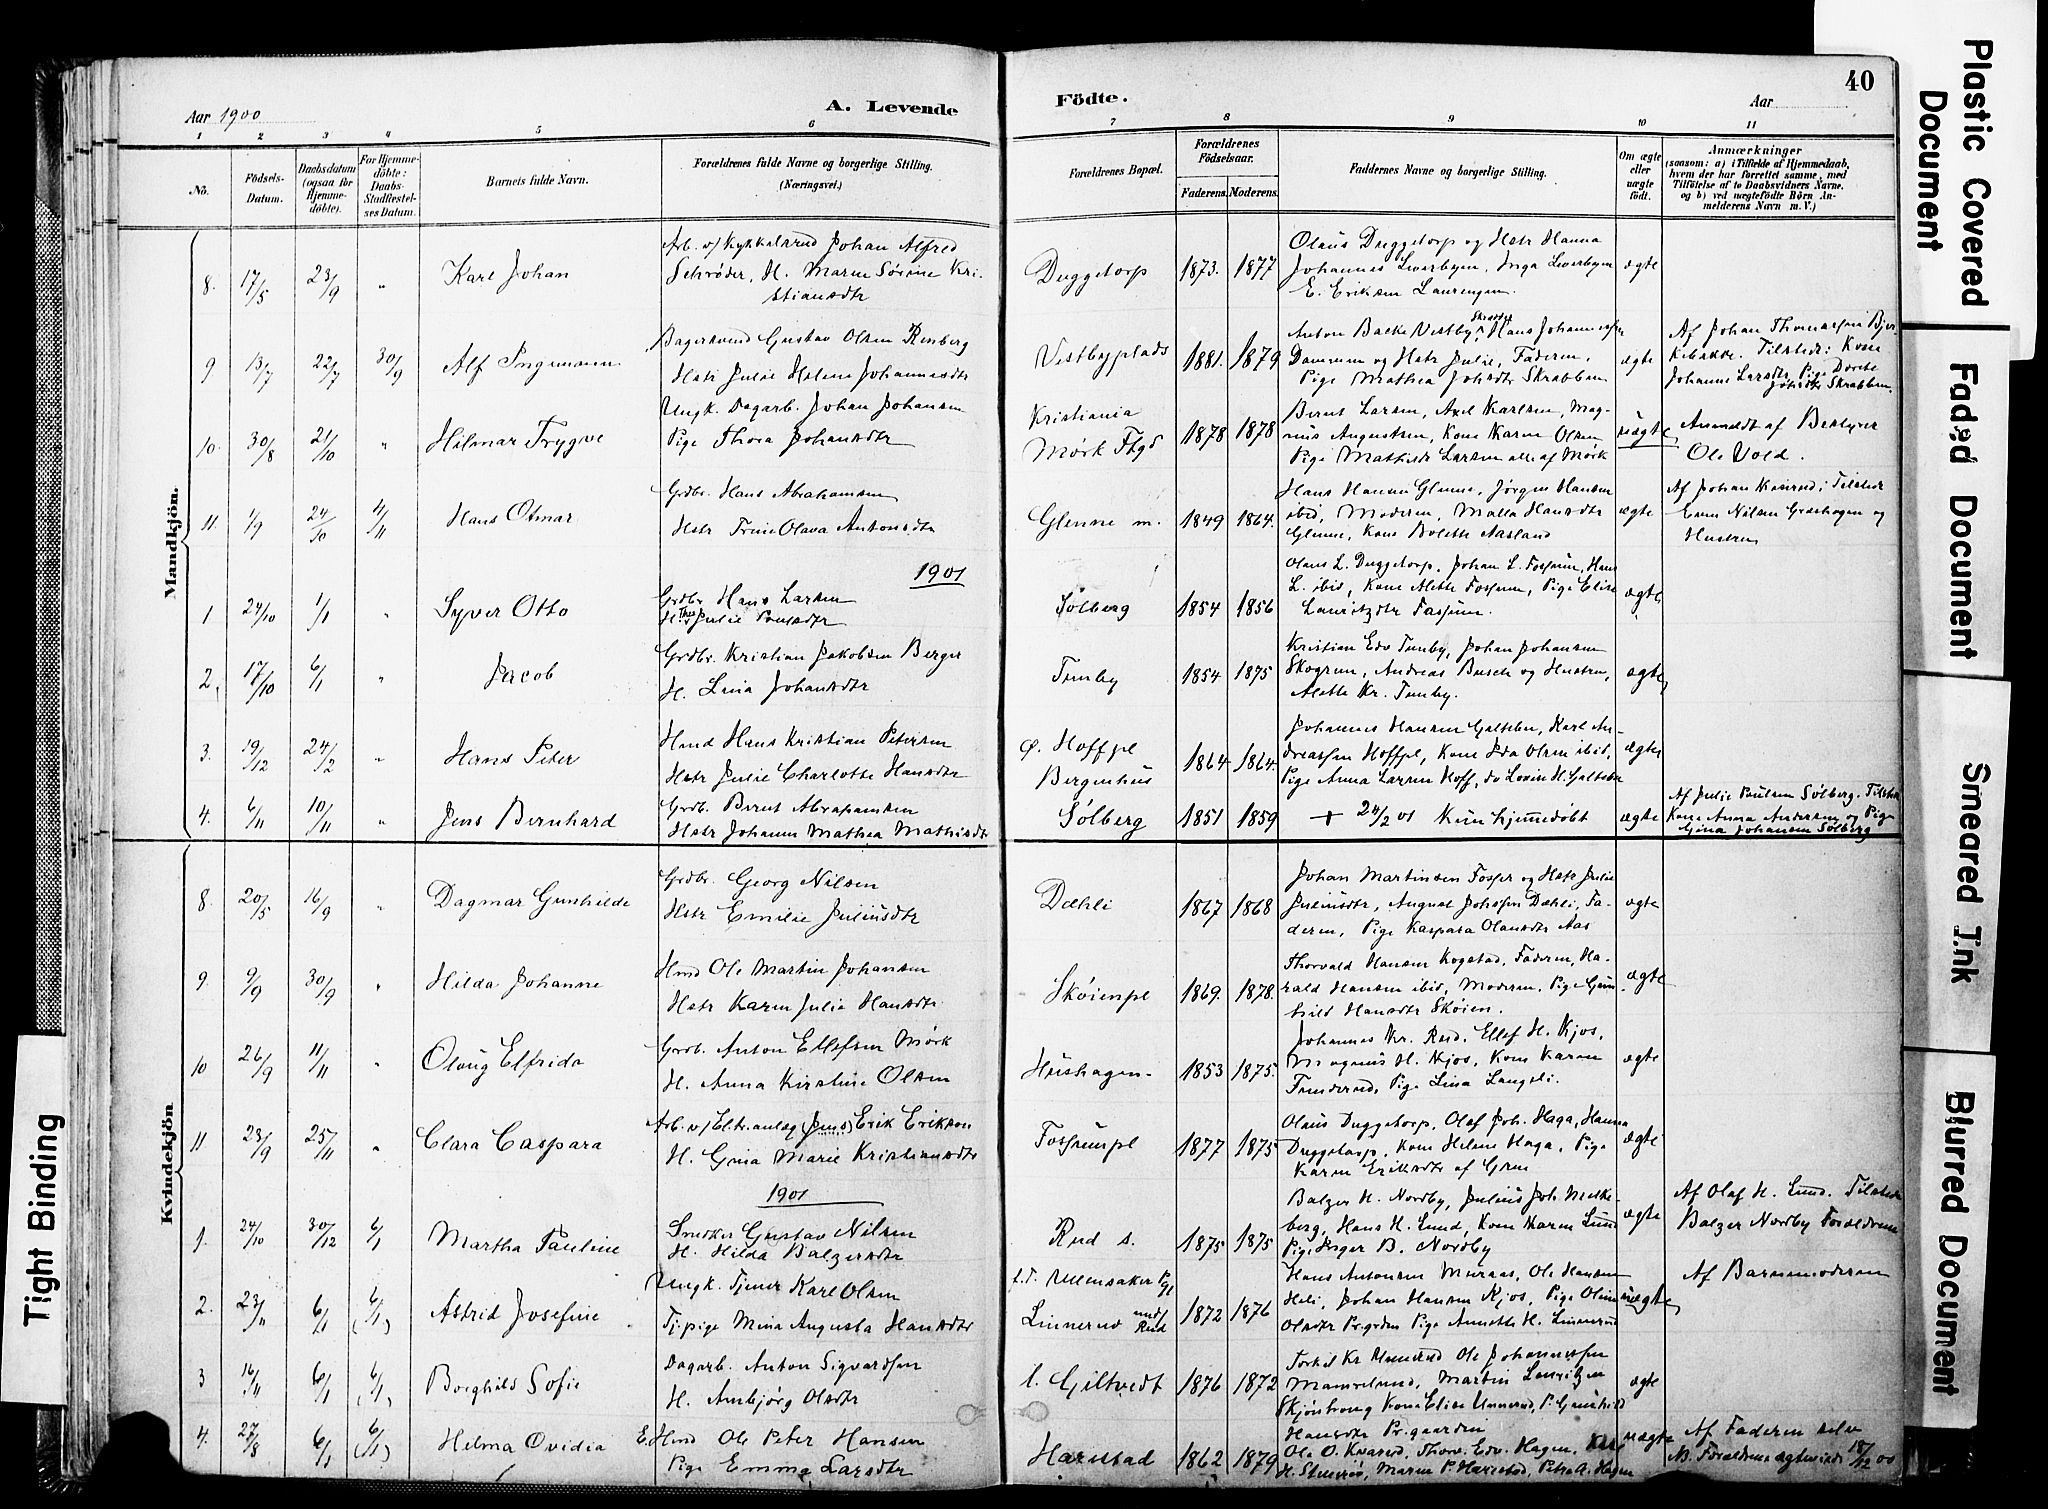 40
Aar 1900
A. Levende
Födte.
Aar
1 2 3 4 5 6 7 8 9 10 11
No.
Födsels-Datum.
Daabsdatum (ogsaa for Hjemme-döbte).
For Hjemme-döbte: Daabs-Stadfæstel-ses Datum.
Barnets fulde Navn.
Forældrenes fulde Navne og borgerlige Stilling. (Næringsvei.)
Forældrenes Bopæl.
Forældrenes Födselsaar.
Faderens. Moderens.
Faddernes Navne og borgerlige Stilling.
Om ægte eller uægte födt.
Anmærkninger
(saasom: a) i Tilfælde af Hjemmedaab,
hvem der har forrettet samme, med
Tilföielse af to Daabsvidners Navne,
og b) ved uægtefödte Börn An-
melderens Navn m. V.)
Mandkjön.
8. 17/5 23/9 " Karl Johan
Arb. v/ Kykkelsrud Johan Alfred
Schrøder, H. Maren Sørine Kri-
stiansdtr
Duggetorp 1873. 1877
Olaus Duggetorp og Hstr Hanna
Johannes Liverbyen, Inga Liverbyen
E. Eriksen Laurengen.
ægte
9 13/7 22/7 30/9 Alf Ingemann
Bagersvend Gustav Olsen Renberg
Hstr Julie Helene Johannesdtr
Vestbyplads 1881. 1879
Anton Bakke Vestby, Hans Johannessen
og Hstr Julie, Faderen,
Pige Mathea Johsdtr Skrabben
ægte
Af Johan Thomassen Bjer-
kebakke. Tilstede: Kone
Johanne Larsdtr, Pige Dorte
Johsdtr Skrabben
10. 30/8 21/10 " Hilmar Trygve
Ungk. Dagarb. Johan Johansen
Pige Thora Johansdtr
Kristiania
Mørk Fthgd 1878 1878
Bernt Larsen, Axel Karlsen, Mag-
nus Augustsen, Kone Karen Olsen
Pige Mathilde Larsen alle af Mørk
uægte
Anmeldt af Bestyrer
Ole Vold.
11. 1/9 24/10 4/11 Hans Otmar
Grdbr. Hans Abrahamsen
Hstr Trine Olava Antonsdtr
Glenne m. 1849 1864.
Hans Hansen Glenne, Jørgen Hansen
ibid, Moderen, Malla Hansdtr
Glenne, Kone Bolette Aasland
ægte
Af Johan ; Tilsted
Even Nilsen Græshagen og
Hustru
1901
1 24/10 1/1 " Syver Otto
Grdbr Hans Larsen
H. Thea Julie Poulsdtr
Sølberg 1854 1856
Olaus L. Duggetorp, Johan L. Fossum, Hans
L. ibid, Kone Alette Fossum, Pige Elise
Lauritzdtr Fossum.
ægte
2. 17/10 6/1 " Jacob
Grdbr. Kristian Jakobsen Berger
H. Lina Johansdtr
Tomby 1854 1875
Kristian Edv Tomby, Johan Johansen
Skogrum, Andreas Busch og Hustru,
Alette Kr. Tomby.
ægte
3. 19/12 24/2 " Hans Peter
Hmd Hans Kristian Petersen
Hstr Julie Charlotte Hansdtr
Ø. Hoffpl
Bergenhus 1864 1864.
Johannes Hansen Galteben, Karl An-
dreassen Hoffpl, Kone Ida Olsen ibid,
Pige Anna Larsen Hoff, do Lovise H. Galteben
ægte
4. 6/11 10/11 " Jens Bernhard
Grdb. Bernt Abrahamsen
Hstr Johanne Mathea Mathisdtr
Sølberg 1851 1859
+ 24/2 01 Kun hjemmedøbt
ægte
Af Julie Paulsen Sølberg. Tilstede
Kone Anna Andersen og Pige
Gina Johansen Sølberg
Kvindekjön
8. 20/5 16/9 " Dagmar Gunhilde
Grdbr. Georg Nilsen
Hstr Emilie Juliusdtr
Dæhli 1867 1868
Johan Martinsen Foss og Hstr Julie
Juliusdtr, August Johssen Dæhli, Fa-
deren, Pige Kaspara Olausdtr Aas
ægte
9. 9/9 30/9 " Hilda Johanne
Hmd Ole Martin Johansen
Hstr Karen Julie Hansdtr
Skøienpl 1869. 1878.
Thorvald Hansen Kogstad, Faderen, Ha-
rald Hansen ibid, Moderen, Pige Gun-
hild Hansdtr Skøien.
ægte
10 26/9 11/11 " Olaug Elfrida
Grdb. Anton Ellefsen Mørk
H. Anna Kirstine Olsen
Hushagen 1853 1875.
Johannes Kr. Rud, Ellef H. Kjos,
Magnus H. Kjos, Kone Karen
Tenderud, Pige Lina Langeli.
ægte
11 23/9 25/11 " Clara Caspara
Arb. v/ Eltr. anlæg (Jens) Erik Eriksen
H. Gina Marie Kristiansdtr
Fossumpl 1877 1875
Olaus Duggetorp, Olaf Joh. Haga, Hanna
Duggetorp, Kone Helene Haga, Pige
Karen Eriksdtr af Gren
ægte
1901
1. 24/10 30/12 6/1 Martha Pauline
Snedker Gustav Nilsen
H. Hilda Balzersdtr
Rud s. 1875 1875
Balzer H. Nordby, Julius Joh. Melke-
berg, Hans H. Lund, Kone Karen Lund
Pige Inger B. Nordby
ægte
Af Olaf H. Lund. Tilstede
Balzer Nordby Forældrene
2. 23/11 6/1 (6/1) Astrid Josefine
Ungk. Tjener Karl Olsen
Tjpige Mina Augusta Hansdtr
f.T. Ullensaker Pgj
Linnerud und/ Rud 1872 1876
Hans Antonsen Muraas, Ole Hansen
Heli, Johan Hansen Kjos, Pige Oline
Olsdtr Pr.grden Pige Annette H. Linnerud
uægte
Af Barnemoderen
3 16/11 6/1 (6/1) Borghild Sofie
Dagarb. Anton Sigvardsen
H. Anbjørg Olsdtr
l. Giltvedt 1876 1872
Torkil Kr Unnerud Ole Johannessen
Mamrelund, Martin Lauritzen
Skjønhaug Kone Elise Unnerud, P. Gunhild
Hansdtr Pr.gaarden
ægte
4. 27/8 6/1 (6/1) Helma Ovidia
E. Hmd Ole Peter Hansen
Pige Emma Larsdtr
Harestad 1862 1879
Ole O. Knarud, Thorv. Edv. Hagen, Karl
H. Stenerøs, Maren P. Harestad, Petra A. Hagen
uægte
Af Faderen selv
NB. Forældrene ægteviede 18/12 00
Plastic Covered Document
Faded Document
Smeared Ink
Blurred Document
Tight Binding